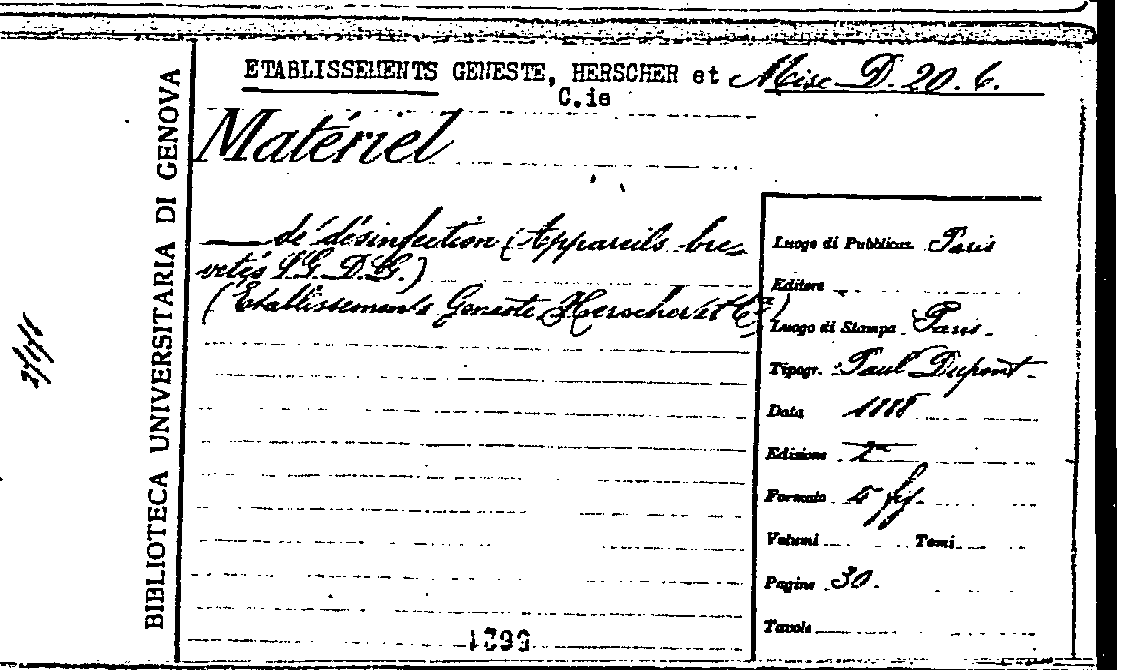 ETABLISSEMENTS GENESTE, HERSCHER et C.ie
Misc. D. 20. 6.
Matériel
de désinfection (Appareils bre-
vetés S.G.D.G.)
(Etablissements Geneste Herscher et Cie)
BIBLIOTECA UNIVERSITARIA DI GENOVA
Luogo di Pubblicaz. Paris
Editore
Luogo di Stampa Paris.
Tipogr. Paul Dupont.
Data 1888
Edizione
Formato
Volumi Tomi
Pagine 30.
Tavole